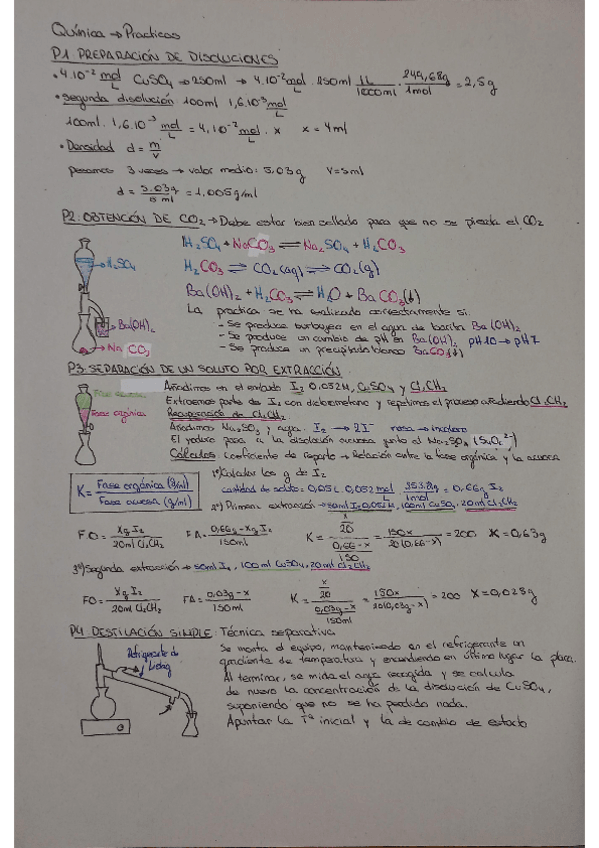 Química → Practicas
P.1. PREPARACIÓN DE DISOLUCIONES
• 4·10⁻² mol/L CuSO₄ → 250ml → 4·10⁻² mol/L · 250ml · 1L/1000ml · 249,68g/1mol = 2,5g
• Segunda disolución 100ml 1,6·10⁻³ mol/L
100ml · 1,6·10⁻³ mol/L = 4,10⁻² mol/L · x x = 4ml
• Densidad d = m/v
pesamos 3 veces → valor medio: 5.03g V=5ml
d = 5.03g/5 ml = 1,005g/ml
P2. OBTENCIÓN DE CO₂ → Debe estar bien sellado para que no se pierda el CO₂
H₂SO₄ + NaCO₃ ⇌ Na₂SO₄ + H₂CO₃
→ H₂SO₄
H₂CO₃ ⇌ CO₂(aq) ⇌ CO₂(g)
Ba(OH)₂ + H₂CO₃ ⇌ H₂O + BaCO₃(↓)
La practica se ha realizado correctamente si:
→ Ba(OH)₂
- Se produce burbujeo en el agua de barita Ba(OH)₂
- Se produce un cambio de pH en Ba(OH)₂ pH10 → pH7
→ Na CO₃
- Se produce un precipitado blanco BaCO₃(↓)
P3. SEPARACIÓN DE UN SOLUTO POR EXTRACCIÓN
Fase acuosa
Fase orgánica
Añadimos en el embudo I₂ 0,052M, CuSO₄ y Cl₂CH₂
Extraemos parte de I₂ con diclorometano y repetimos el proceso añadiendo Cl₂CH₂
Recuperación de Cl₂CH₂
Añadimos Na₂SO₃ y agua. I₂ → 2I⁻ rosa → incoloro
El yoduro pasa a la disolución acuosa junto al
Cálculos coeficiente de reparto → Relación entre la fase orgánica y la acuosa
K = Fase orgánica (g/ml)/Fase acuosa (g/ml)
1º) Calcular los g de I₂
cantidad de soluto: 0,05L 0,052 mol/L · 253.81g/1mol = 0,66g I₂
2º) Primera extracción → 50ml I₂ 0,052M, 100ml CuSO₄, 20ml Cl₂CH₂
F.O = Xg I₂/20ml Cl₂CH₂ F.A = 0,66g - Xg I₂/150ml K = (x/20)/((0,66-x)/150) = 150x/20(0,66-x) = 200 X=0,63g
3º) Segunda extracción → 50ml I₂, 100ml CuSO₄, 20ml Cl₂CH₂
FO = Xg I₂/20ml Cl₂CH₂ FA = 0,03g - x/150ml K = (x/20)/((0,03g-x)/150ml) = 150x/20(0,03g-x) = 200 X=0,028g
P4. DESTILACIÓN SIMPLE: Técnica separativa
Refrigerante de Liebig
Se monta el equipo, manteniendo en el refrigerante un
gradiente de temperatura y encendiendo en último lugar la placa.
Al terminar, se mide el agua recogida y se calcula
de nuevo la concentración de la disolución de CuSO₄,
suponiendo que no se ha perdido nada.
Apuntar la Tª inicial y la de cambio de estado